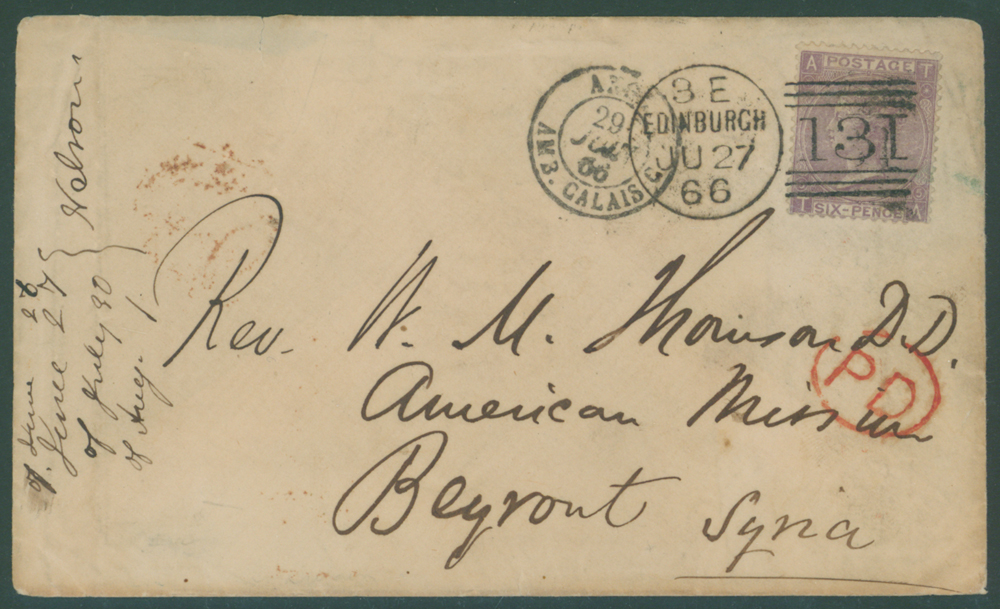 A POSTAGE T
131
T SIX-PENCE A
3 E
EDINBURGH
JU 27
66
29
66
AMB. CALAIS C
Rev. W. M. Thomson D.D.
American Mission
Beyrout Syria
P D
Nelsons
June 27
of July 30
of Aug. 1.